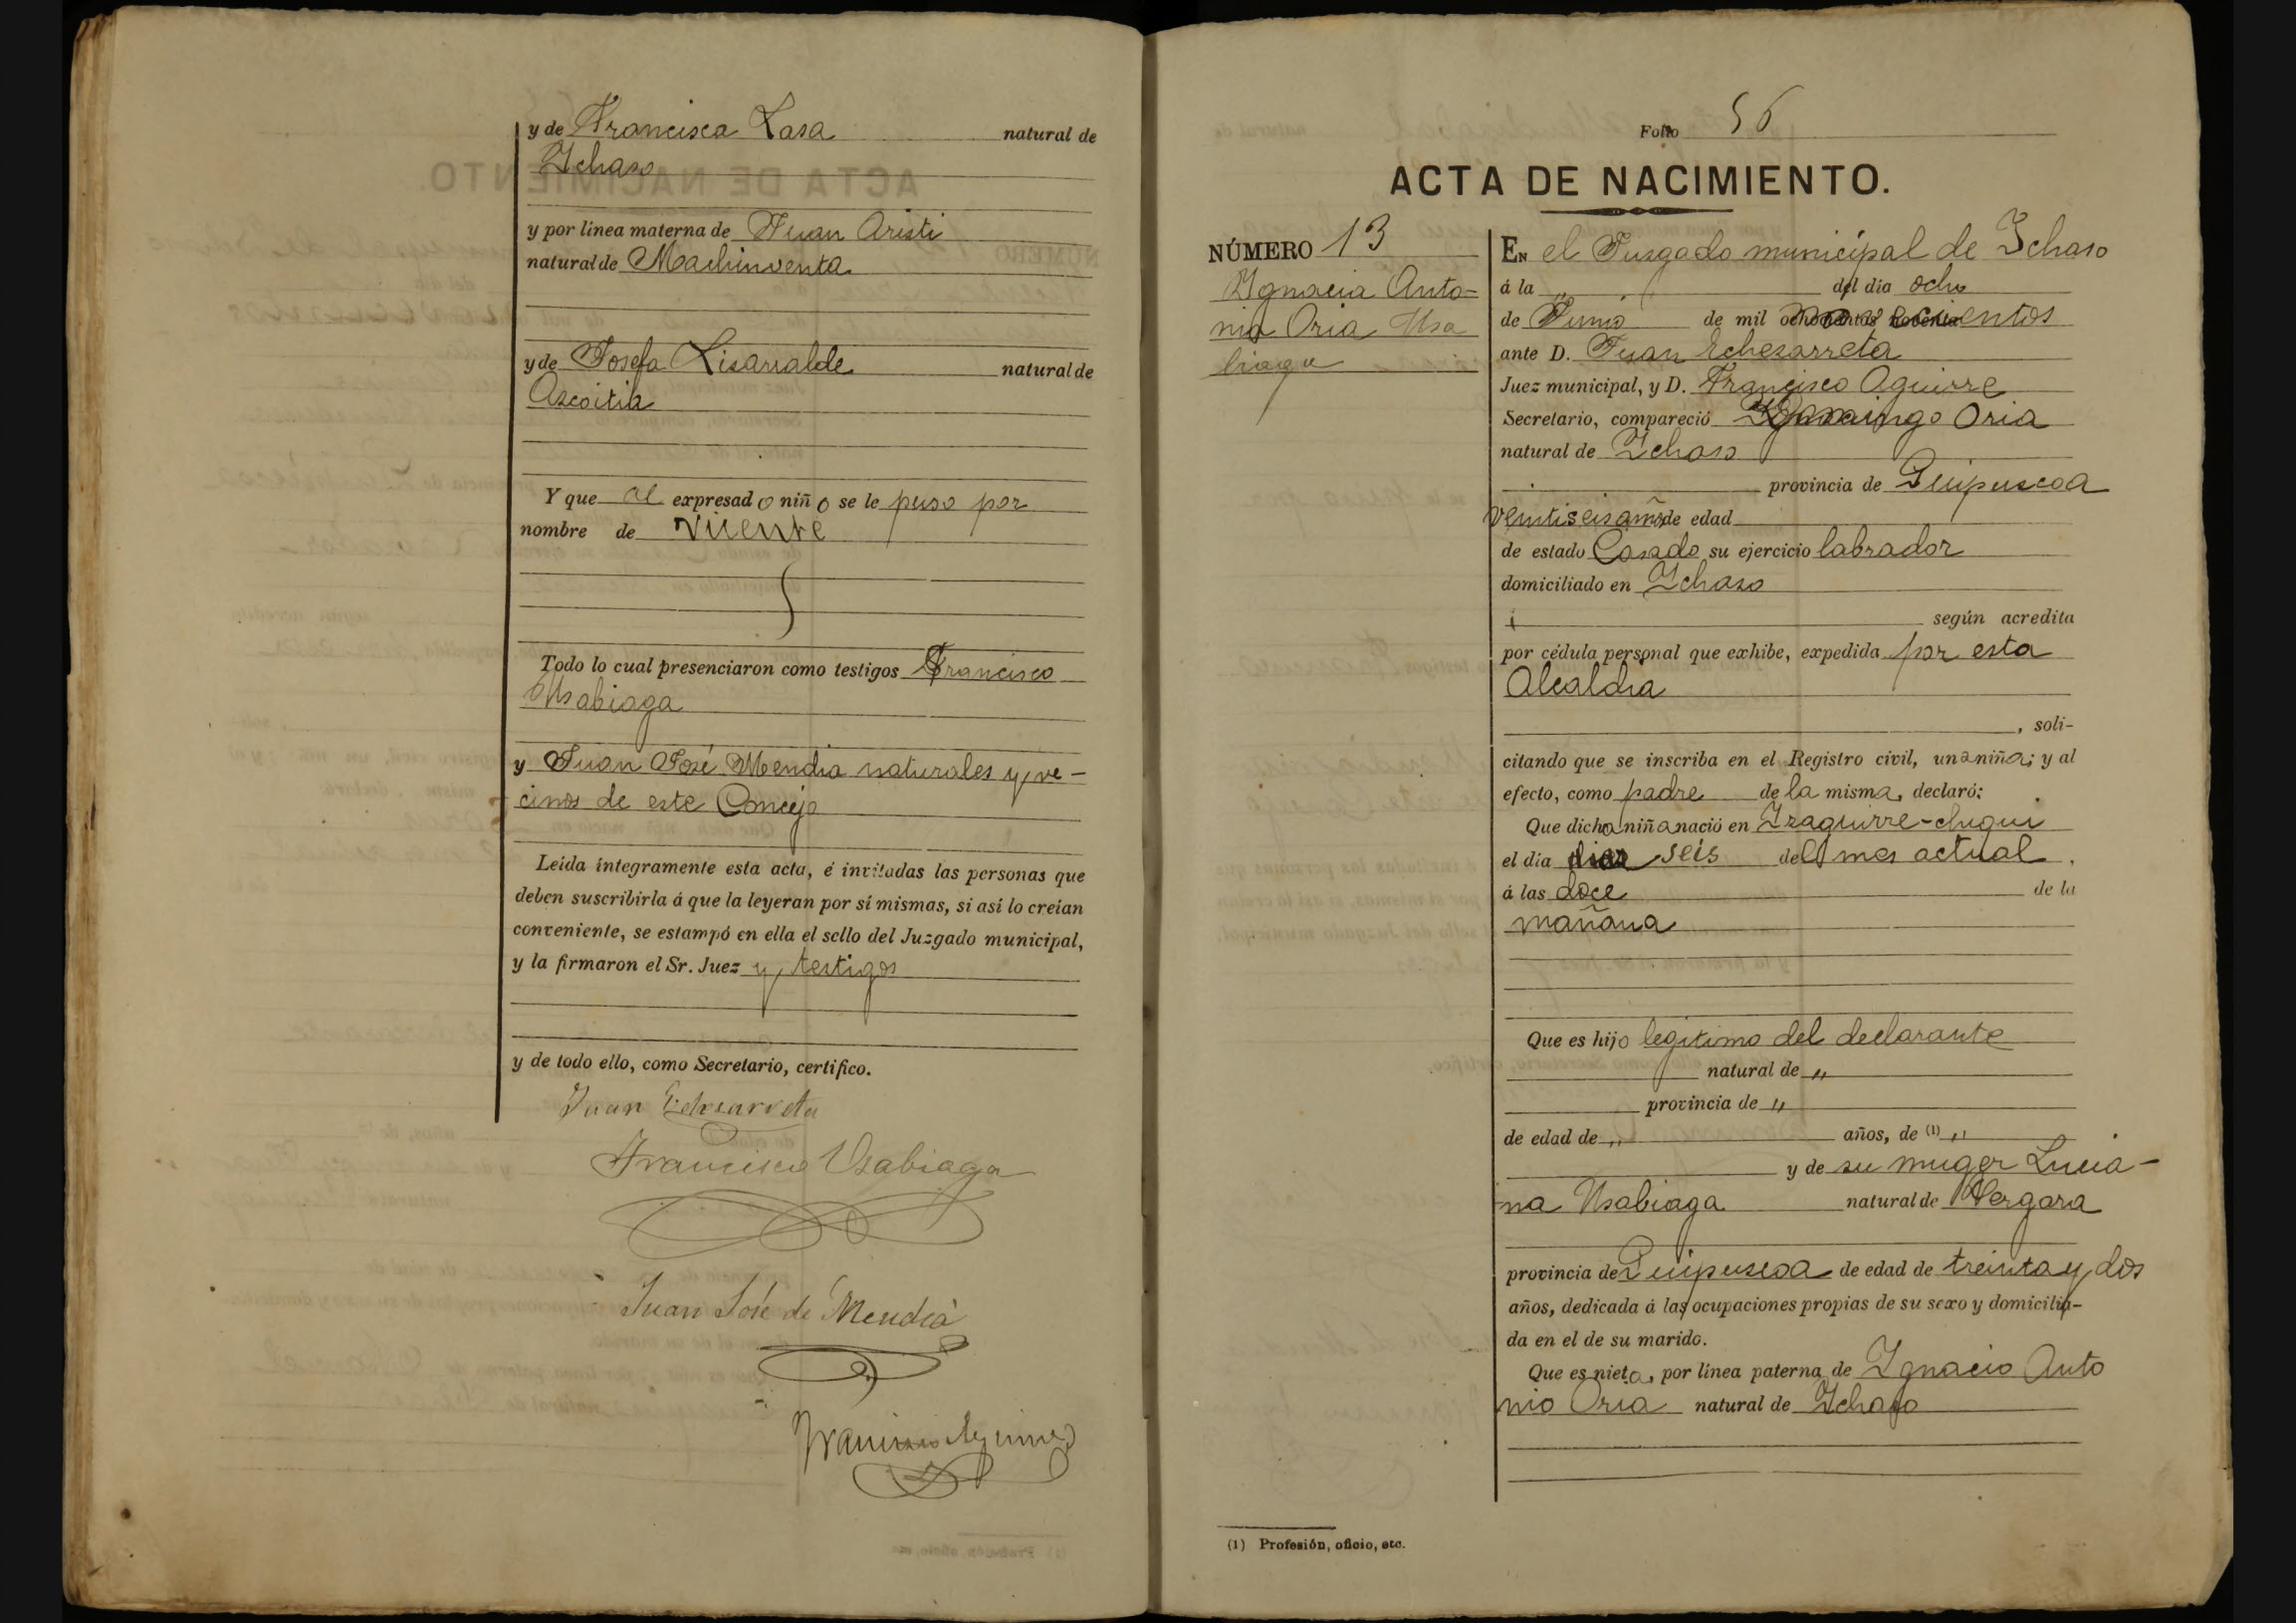 y de Francisca Lasa natural de
Ichaso
y por línea materna de Juan Aristi
natural de Machinventa
y de Josefa Lisarralde natural de
Azcoitia
Y que al expresado niño se le puso por
nombre de Vicente
Todo lo cual presenciaron como testigos Francisco
Usabiaga
y Juan José Mendia naturales y ve-
cinos de este Concejo
Leída íntegramente esta acta, é invitadas las personas que
deben suscribirla á que la leyeran por sí mismas, si así lo creían
conveniente, se estampó en ella el sello del Juzgado municipal,
y la firmaron el Sr. Juez y testigos
y de todo ello, como Secretario, certifico.
Juan Echezarreta
Francisco Usabiaga
Juan José de Mendia
Francisco Aguirre
Folio 56
ACTA DE NACIMIENTO.
NÚMERO 13
Ygnacia Anto-
nia Oria Usa
biaga
En el Jusgado municipal de Ichaso
á la „ del día ocho
de Junio de mil novecientos
ante D. Juan Echezarreta
Juez municipal, y D. Francisco Aguirre
Secretario, compareció Domingo Oria
natural de Ichaso
provincia de Guipuscoa
veintiseis años de edad
de estado Casado su ejercicio labrador
domiciliado en Ichaso
según acredita
por cédula personal que exhibe, expedida por esta
Alcaldia
, soli-
citando que se inscriba en el Registro civil, una niña; y al
efecto, como padre de la misma, declaró:
Que dicha niña nació en Iraguirre-chiqui
el día seis del mes actual
á las doce de la
mañana
Que es hijo legitimo del declarante
natural de „
provincia de „
de edad de „ años, de (1) „
y de su muger Lucia-
na Usabiaga natural de Vergara
provincia de Guipuscoa de edad de treinta y dos
años, dedicada á las ocupaciones propias de su sexo y domicilia-
da en el de su marido.
Que es nieta, por línea paterna de Ygnacio Anto
nio Oria natural de Ichaso
(1) Profesión, oficio, etc.